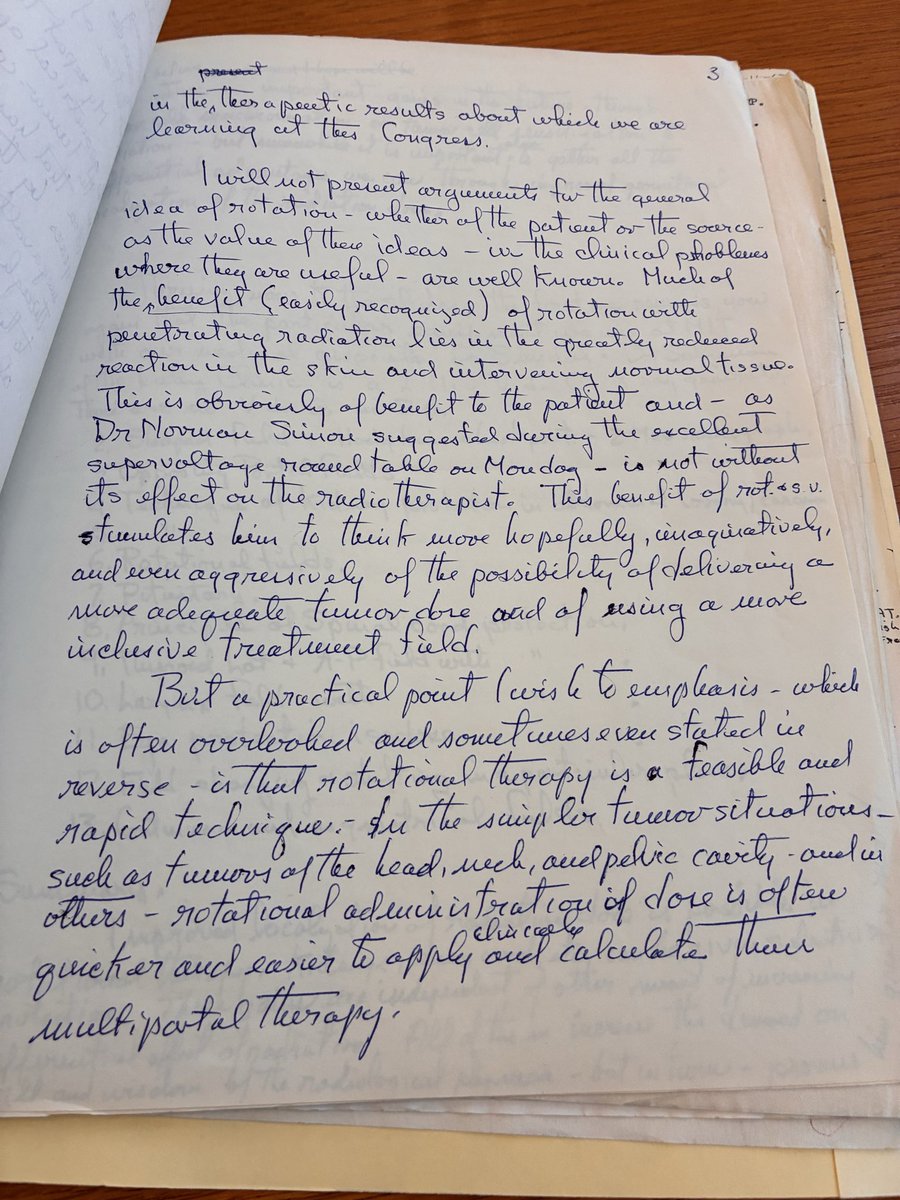 3
present
in the therapeutic results about which we are
learning at this Congress.
I will not present arguments for the general
idea of rotation - whether of the patient or the source -
as the value of these ideas - in the clinical problems
where they are useful - are well known. Much of
the benefit (easily recognized) of rotation with
penetrating radiation lies in the greatly reduced
reaction in the skin and intervening normal tissue.
This is obviously of benefit to the patient and - as
Dr Norman Simon suggested during the excellent
supervoltage round table on Monday - is not without
its effect on the radiotherapist. This benefit of rot. & s.v.
stimulates him to think more hopefully, imaginatively,
and even aggressively of the possibility of delivering a
more adequate tumor dose and of using a more
inclusive treatment field.
But a practical point I wish to emphasis - which
is often overlooked and sometimes even stated in
reverse - is that rotational therapy is a feasible and
rapid technique. - In the simpler tumor situations -
such as tumors of the head, neck, and pelvic cavity - and in
others - rotational administration of dose is often
clinically
quicker and easier to apply and calculate than
multiportal therapy.